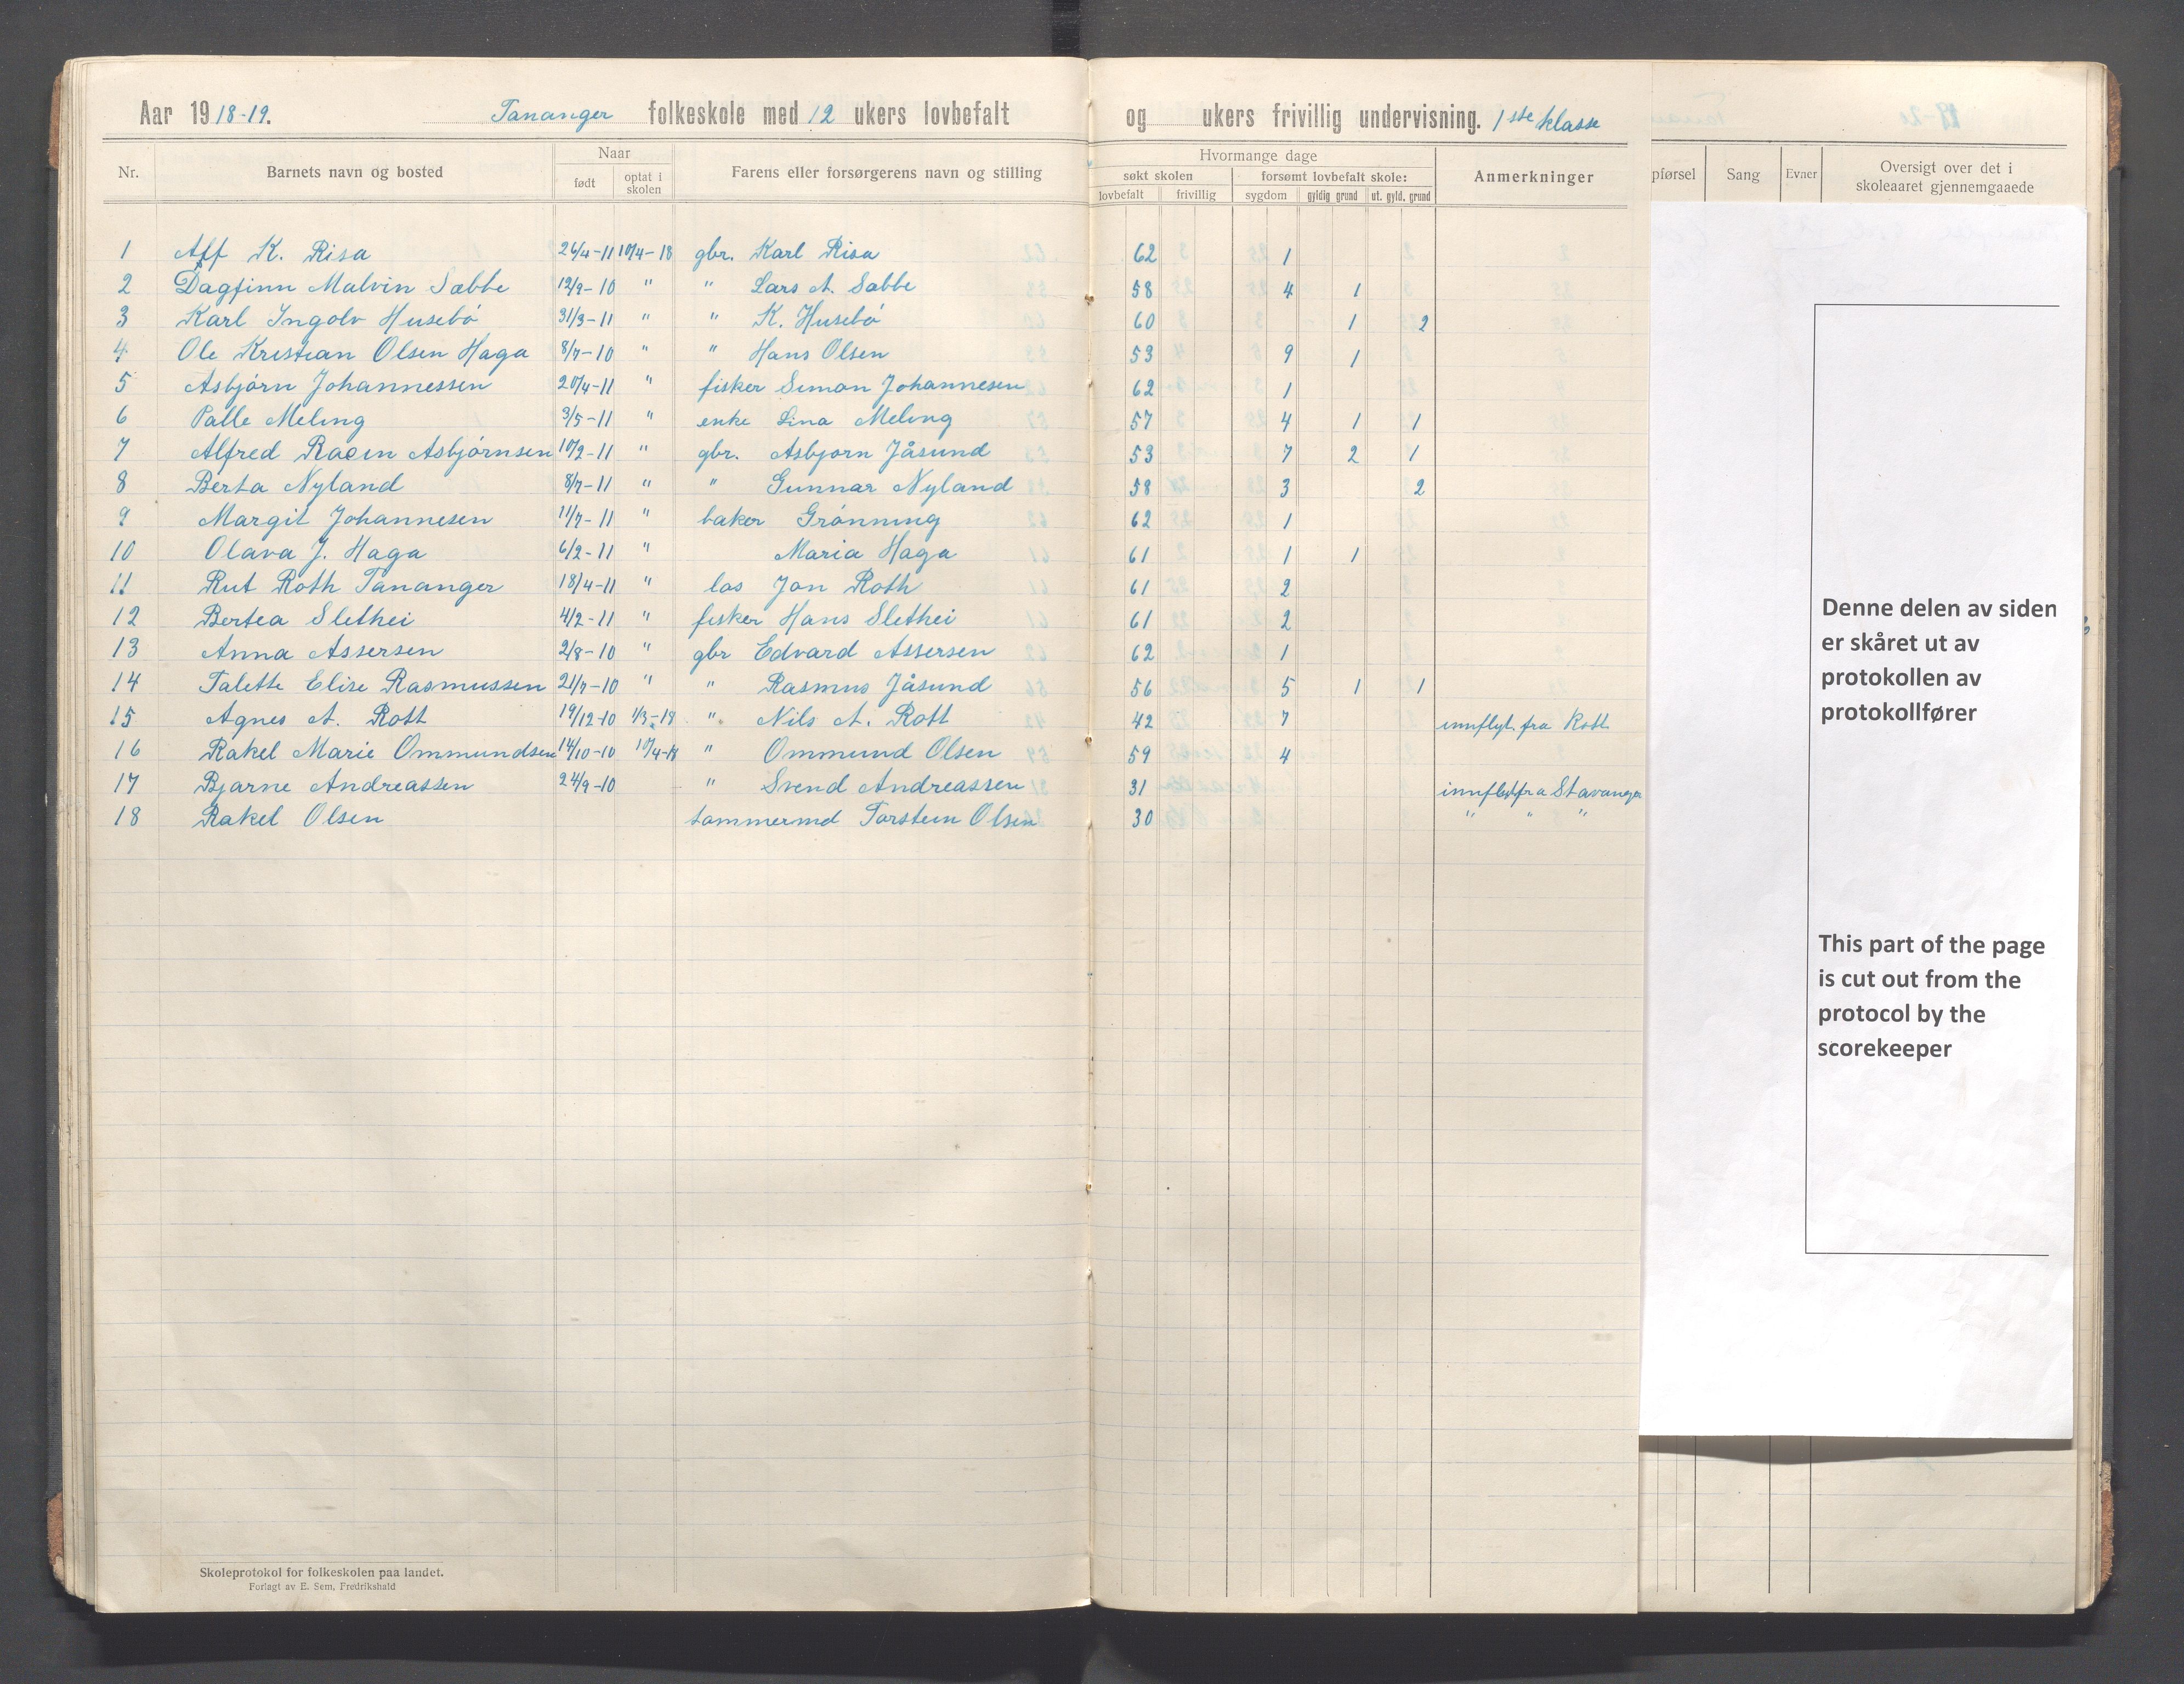 Aar 1918-19. Tananger folkeskole med 12 ukers lovbefalt og ukers frivillig undervisning. 1ste klasse
Nr. Barnets navn og bosted Naar født optat i skolen Farens eller forsørgerens navn og stilling Hvormange dage søkt skolen lovbefalt frivillig forsømt lovbefalt skole: sygdom gyldig grund ut. gyld. grund Anmerkninger
pførsel Sang Evner Oversigt over det i skoleaaret gjennemgaaede
1 Alf K. Risa 26/4-11 10/4-18 gbr. Karl Risa 62 1
2 Dagfinn Malvin Sæbbe 12/9-10 " " Lars A. Sæbbe 58 4 1
3 Karl Ingolv Husebö 31/3-11 " " K. Husebö 60 1 2
4 Ole Kristian Olsen Haga 8/7-10 " " Hans Olsen 53 9 1
5 Asbjörn Johannessen 20/4-11 " fisker Simon Johannesen 62 1
6 Palle Meling 3/5-11 " enke Lina Meling 57 4 1 1
7 Alfred Asbjørnsen 10/2-11 " gbr. Asbjorn Jåsund 53 7 2 1
8 Berta Nyland 8/7-11 " " Gunnar Nyland 58 3 2
9 Margit Johannesen 11/7-11 " baker Grönning 62 1
10 Olava J. Haga 6/2-11 " Maria Haga 61 1 1
11 Rut Roth Tananger 18/4-11 " los Jon Roth 61 2
12 Bertea Slethei 4/2-11 " fisker Hans Slethei 61 2
13 Anna Assersen 2/8-10 " gbr Edvard Assersen 62 1
14 Talette Elise Rasmussen 21/7-10 " " Rasmus Jåsund 56 5 1 1
15 Agnes A. Rott 19/12-10 1/3-19 " Nils A. Rott 42 7 innflyt. fra Rott
16 Rakel Marie Ommundsen 14/10-10 10/4-18 " Ommund Olsen 59 4
17 Bjarne Andreassen 24/9-10 " Svend Andreassen 31 innflyt fra Stavanger
18 Rakel Olsen tømmermd Torstein Olsen 30 " " "
Denne delen av siden
er skåret ut av
protokollen av
protokollfører
This part of the page
is cut out from the
protocol by the
scorekeeper
Skoleprotokol for folkeskolen paa landet.
Forlagt av E. Sem, Fredrikshald